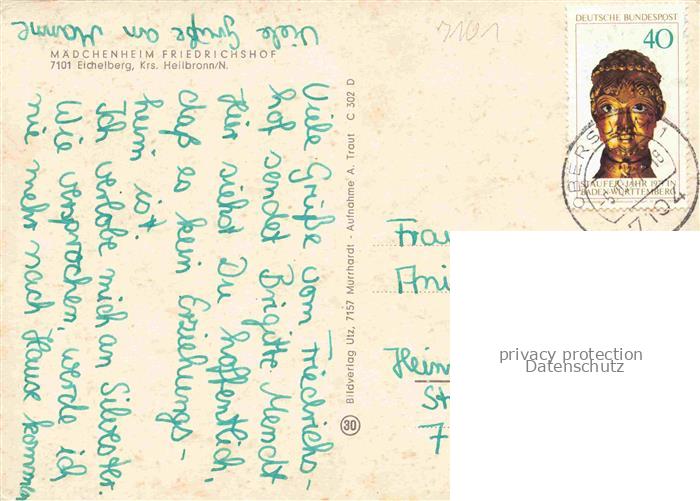 Viele Grüße an Hanne
MÄDCHENHEIM FRIEDRICHSHOF
7101 Eichelberg, Krs. Heilbronn/N.
7101
Viele Grüße vom Friedrichs-
hof sendet Brigitte
Hier siehst Du hoffentlich,
daß es kein Erziehungs-
heim ist.
Ich verlobe mich an Silvester.
Wie versprochen, werde ich
nie mehr nach Hause kommen
Bildverlag Utz, 7157 Murrhardt - Aufnahme A. Traut C 302 D
30
DEUTSCHE BUNDESPOST
40
STAUFER-JAHR 1977 IN
BADEN-WÜRTTEMBERG
OBERS
1
7104
Frau
Heim
St
7
privacy protection
Datenschutz